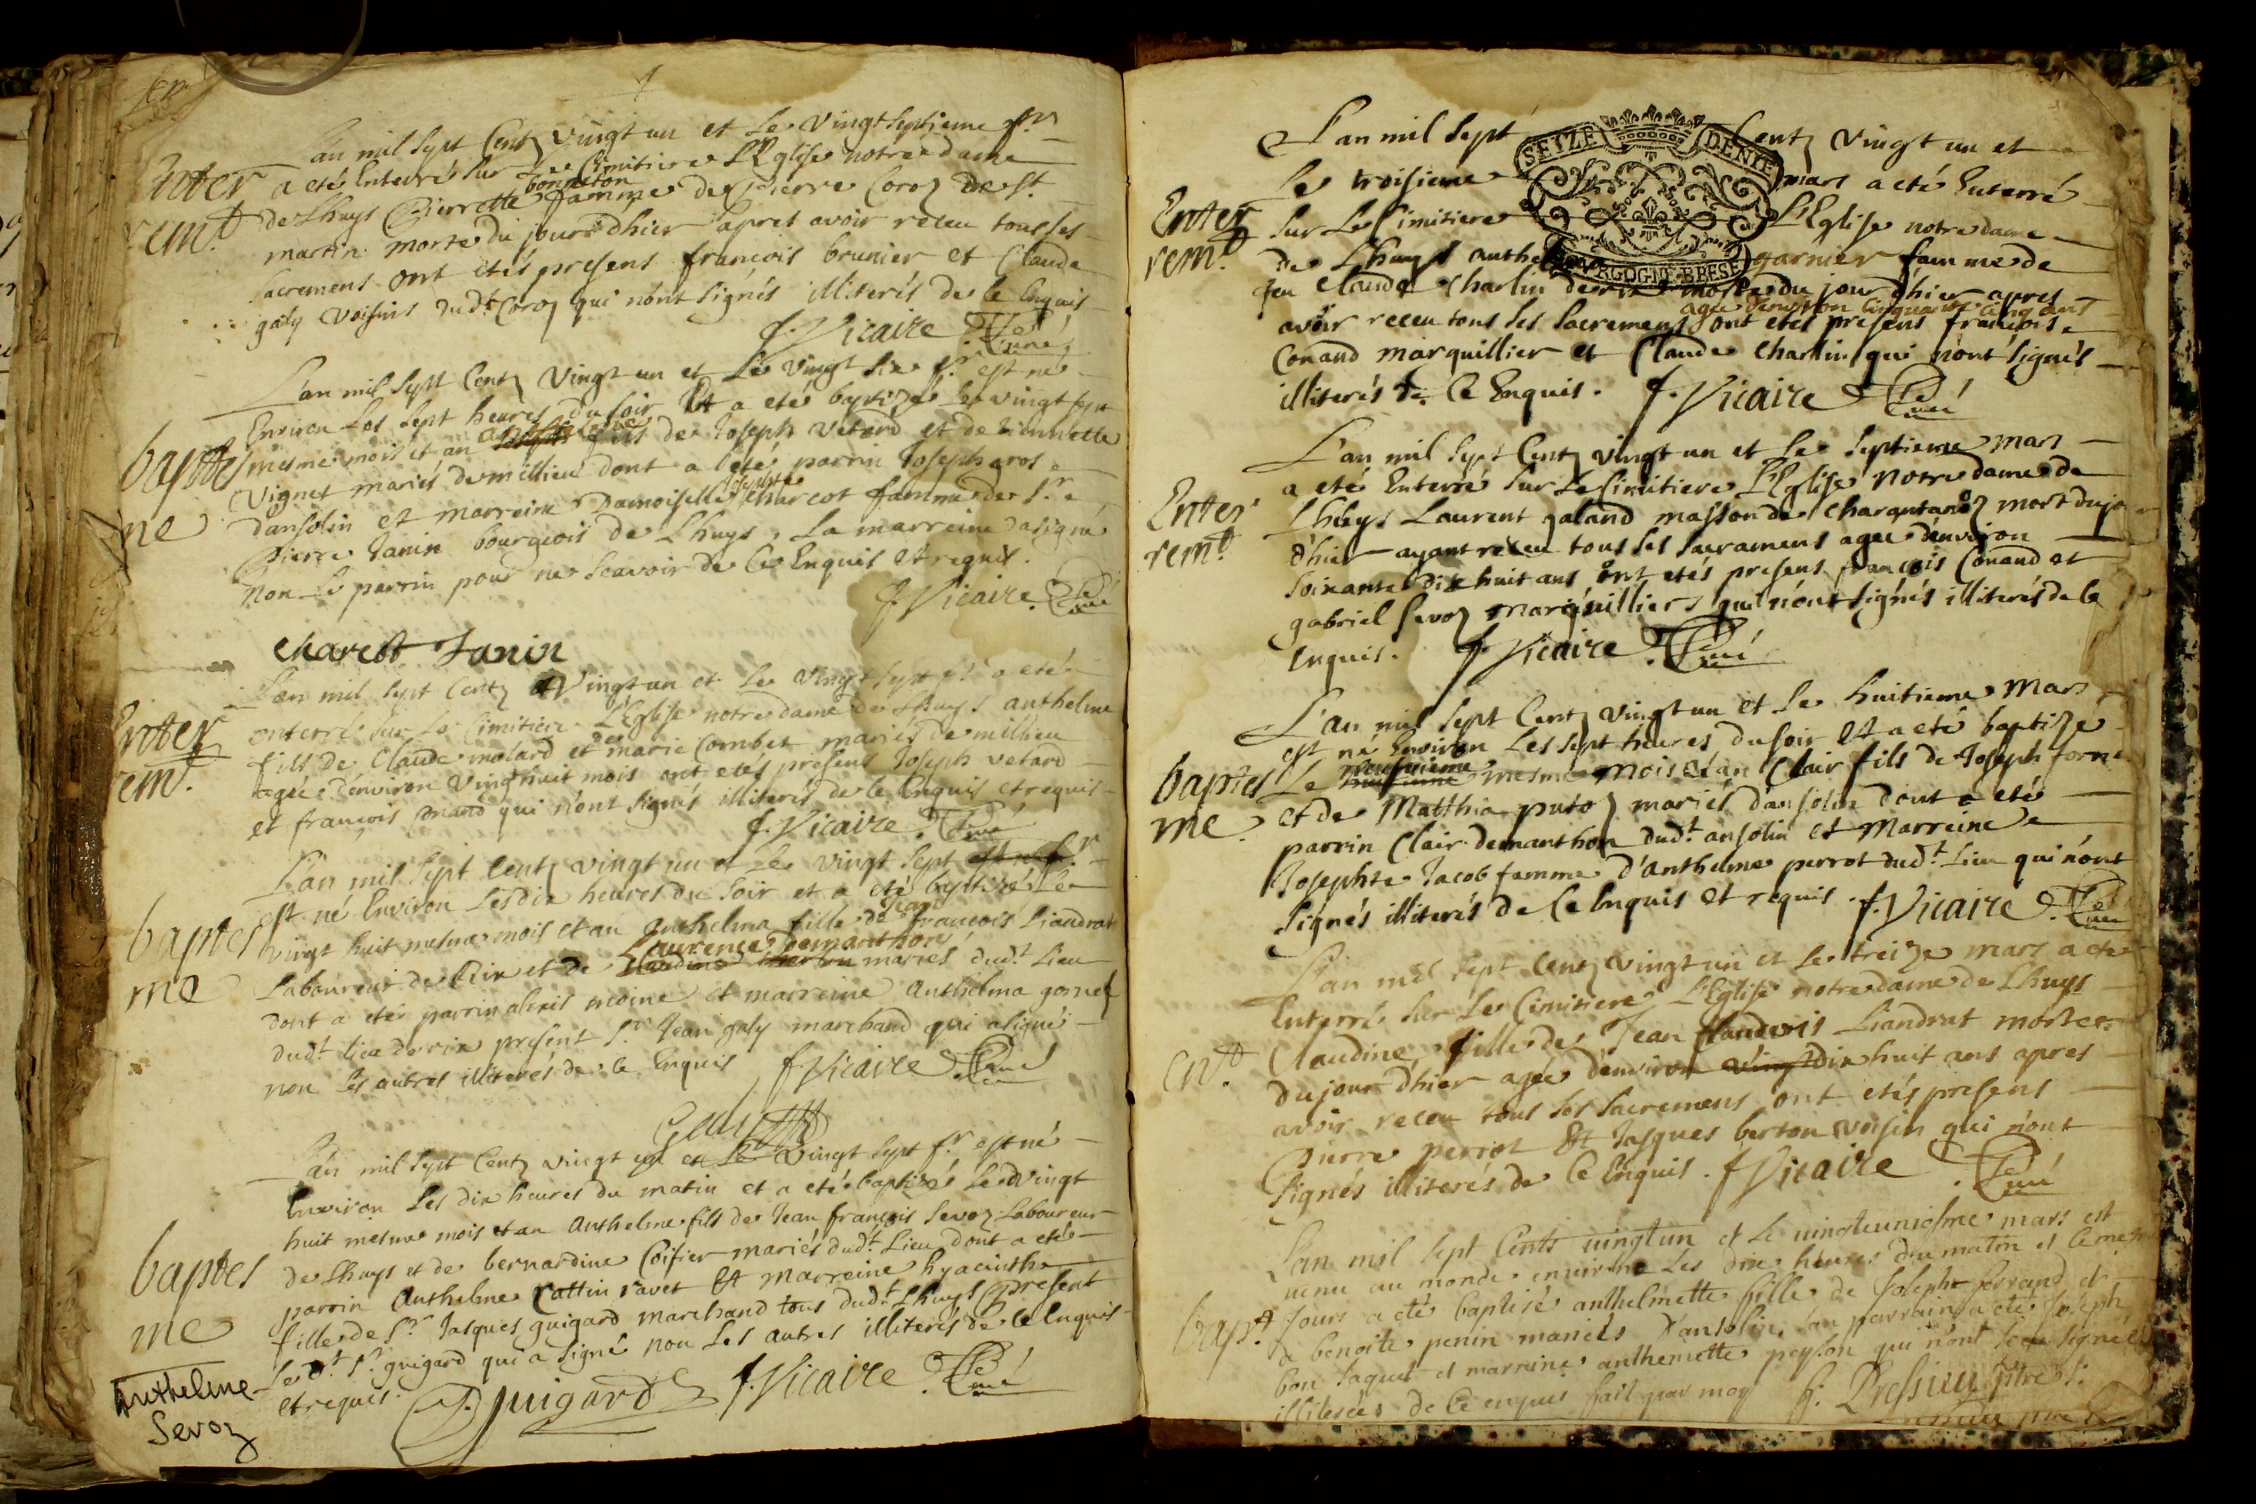 L'an mil sept Cent vingt un et le vingt septieme fr.
a eté Enterré sur Le Cimitiere L'Eglise notre dame
Enter
rem.t
bonneton
de Lhuys Pierrette famme de Pierre Coroz de St.
martin morte du jour d'hier apres avoir receu tous les
sacremens ont etés presens françois brunier et Claude
galy voisins dud.t Coroz qui n'ont signés illiterés de ce Enquis
f. Vicaire Curé
L'an mil sept Cent vingt un et le vingt six fr. est né
Environ Les sept heures du soir Et a eté baptizé Le vingt sept
baptes
me
mesme mois et an fils de Joseph vetard et de
Vignet mariés de millieu dont a eté parrin Joseph aros
josephte
d'ansolin et marreine Damoiselle Charcot famme de Sr.
Pierre Janin bourgeois de Lhuys, La marreine a signé
Non Le parrin pour ne Scavoir de Ce Enquis et requis.
f. Vicaire Curé
Charcot Janin
L'an mil sept Cent vingt un et le vingt sept fr. a eté
Enter
rem.t
enterré sur Le Cimitiere L'Eglise notre dame de Lhuys anthelme
fils de Claude molard et de marie Combet mariés de millieu
agée d'environ vingt huit mois ont etés presens Joseph vetard
et francois mand qui n'ont signés illiterés de Ce Enquis et requis
f. Vicaire Curé
L'an mil sept Cent vingt un et le vingt sept fr.
est né Environ Les dix heures du soir et a eté baptizé Le
baptes
me
Jean
vingt huit mesme mois et an Anthelma fille de francois Liandrat
Laurence Demanthon
Laboureur de Rix et de mariés dud.t Lieu
dont a eté parrin alexis moine et marreine Anthelma gornel
dud.t Lieu de rix present Sr. Jean galy marchand qui a signé
non Les autres illiterés de Ce Enquis f. Vicaire Curé
L'an mil sept Cent vingt un et Le vingt sept fr. est né
Environ Les dix heures du matin et a eté baptizé Le vingt
huit mesme mois et an Anthelme fils de Jean françois Sevoz Laboureur
baptes
me
de Lhuys et de bernardine Coifier mariés dud.t Lieu dont a eté
parrin Anthelme Cattin ravet Et Marreine hyacinthe
fille de Sr. Jasques guigard marchand tous dud.t Lhuys Present
Led.t Sr. guigard qui a signé non Les autres illiterés de Ce Enquis
et requis.
Guigard f. Vicaire Curé
Anthelme
Sevoz
L'an mil sept Cent vingt un et
SEIZE DENIE
BOURGOGNE BRESE
Le troisieme mars a eté Enterré
Enter
rem.t
sur Le Cimitiere L'Eglise notre dame
de Lhuys garnier famme de
feu Claude Charlin de rix morte du jour d'hier apres
agée d'environ Cinquante Cinq ans
avoir receu tous les sacremens ont etés presens francois
Conand marguillier et Claude Charlin qui n'ont signés
illiterés de Ce Enquis. f. Vicaire Curé
L'an mil sept Cent vingt un et le septieme mars
a eté Enterré sur Le Cimitiere L'Eglise Notre dame de
Enter
rem.t
Lhuys Laurent galand masson de mort du jo
d'hier ayant receu tous les sacramens agée d'environ
soixante dix huit ans ont etés presens francois Conand et
gabriel Sevoz marguilliers qui n'ont signés illiterés de Ce
Enquis. f. Vicaire Curé
L'an mil sept Cent vingt un et le huitieme Mars
est né Environ Les sept heures du soir Et a eté baptizé
baptes
me
neufvieme
Le mesme mois et an Clair fils de Joseph
et de Matthia putoz mariés d'ansolin dont a eté
parrin Clair demanthon dud.t ansolin et Marreine
Josephte Jacob famme d'Anthelme perrot dud.t Lieu qui n'ont
signés illiterés de Ce Enquis et requis. f. Vicaire Curé
L'an mil sept Cent vingt un et le treize mars a eté
Enterré sur Le Cimitiere L'Eglise notre dame de Lhuys
en.t
Claudine fille de Jean Liandrat morte
du jour d'hier agée d'environ dix huit ans apres
avoir receu tous les sacremens ont etés presens
Pierre perrot Et Jasques berton voisin qui n'ont
signés illiterés de Ce Enquis. f. Vicaire Curé
L'an mil sept Cents vingt un et le vingtuniesme mars est
venu au monde environ Les dix heures du matin et le mesme
bap.t
jours a eté baptisé anthelmette fille de Joseph ferrand et
a benoite penin mariés d'ansolin, son parrain a eté Joseph
bon Jaquet et marraine anthemette peyson qui n'ont sceu signé
illiterées de Ce enquis fait par moy